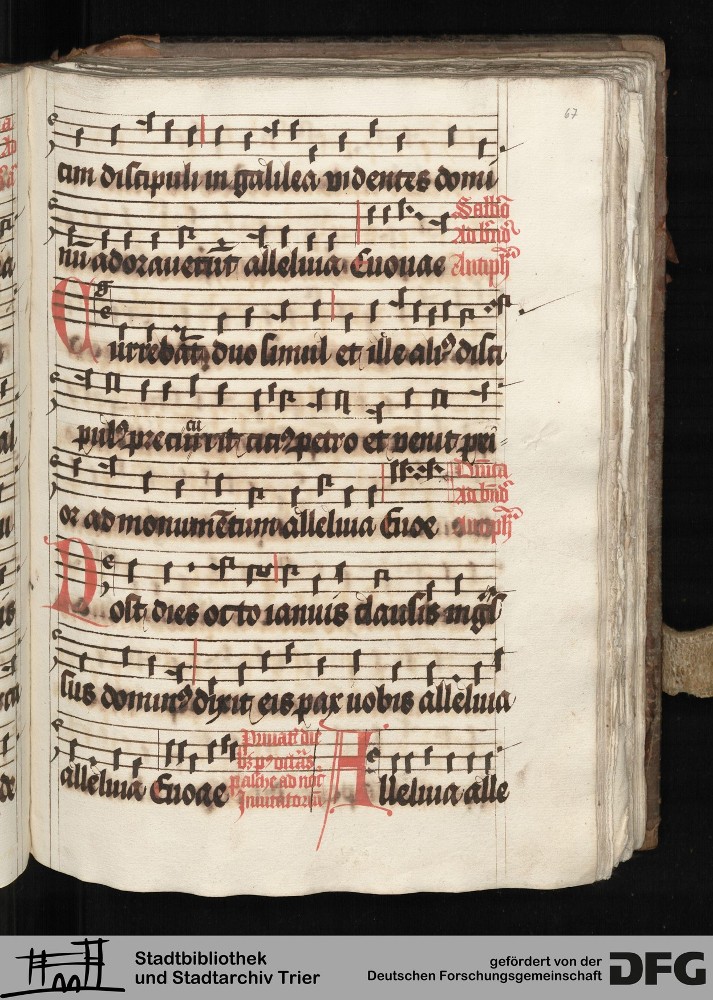 67
cim discipuli in galilea videntes domi
nū adorauerūt alleluia Euouae
Sabbō
Ad bn̄d
Antiph
Currebāt duo simul et ille ali⁹ disci
pul⁹ precucurrit citi⁹ petro et venit pri
or ad monumētum alleluia Euoe
Dn̄ica
Ad bn̄d
Antiph
Post dies octo ianuis clausis ingˢ
sus domin⁹ dixit eis pax uobis alleluia
alleluia Euoae
Priuat̄ die
pasche ad noc
Inuitatoriū
Alleluia alle
Stadtbibliothek
und Stadtarchiv Trier
gefördert von der
Deutschen Forschungsgemeinschaft
DFG